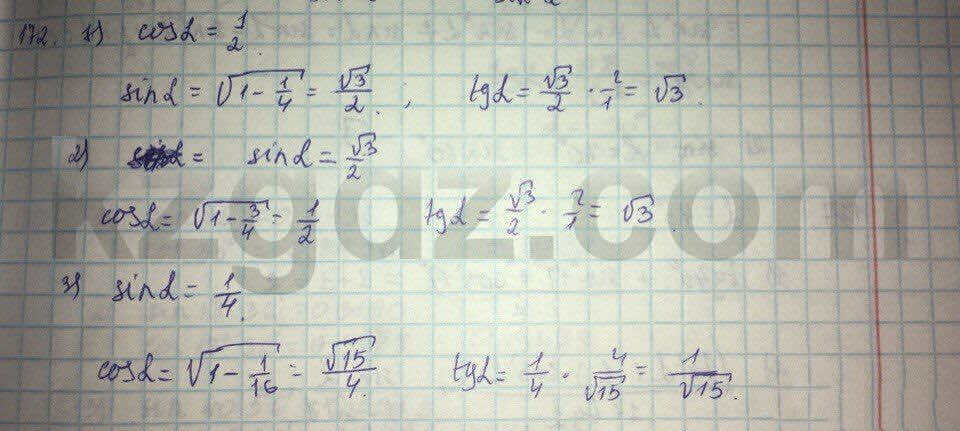 172. 1) cos α = 1/2.
sin α = √(1 - 1/4) = √3/2 ; tg α = √3/2 · 2/1 = √3.
2) sin α = √3/2
cos α = √(1 - 3/4) = 1/2 tg α = √3/2 · 2/1 = √3.
3) sin α = 1/4.
cos α = √(1 - 1/16) = √15/4. tg α = 1/4 · 4/√15 = 1/√15.
kzgdz.com